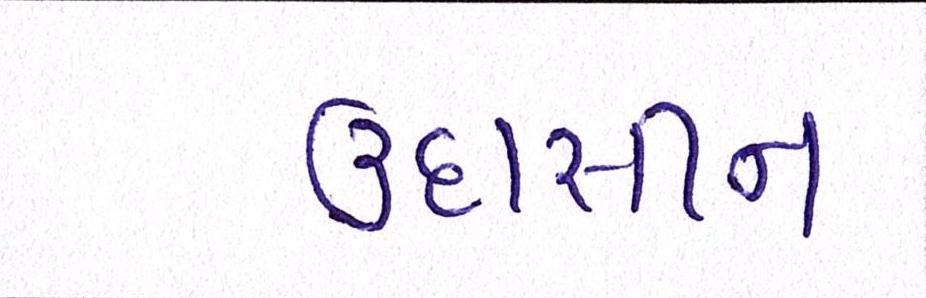 ઉદાસીન